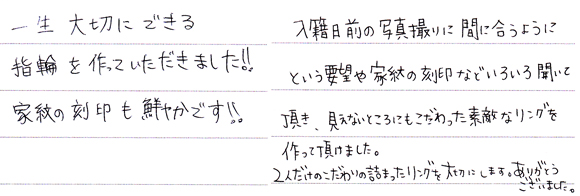 一生 大切に できる
指輪 を 作っていただきました!!
家紋の刻印も 鮮やかです!!
入籍日前の写真撮りに間に合うように
という要望や家紋の刻印などいろいろ聞いて
頂き、見えないところにもこだわった素敵なリングを
作って頂けました。
2人だけのこだわりの詰まったリングを大切にします。ありがとう
ございました。